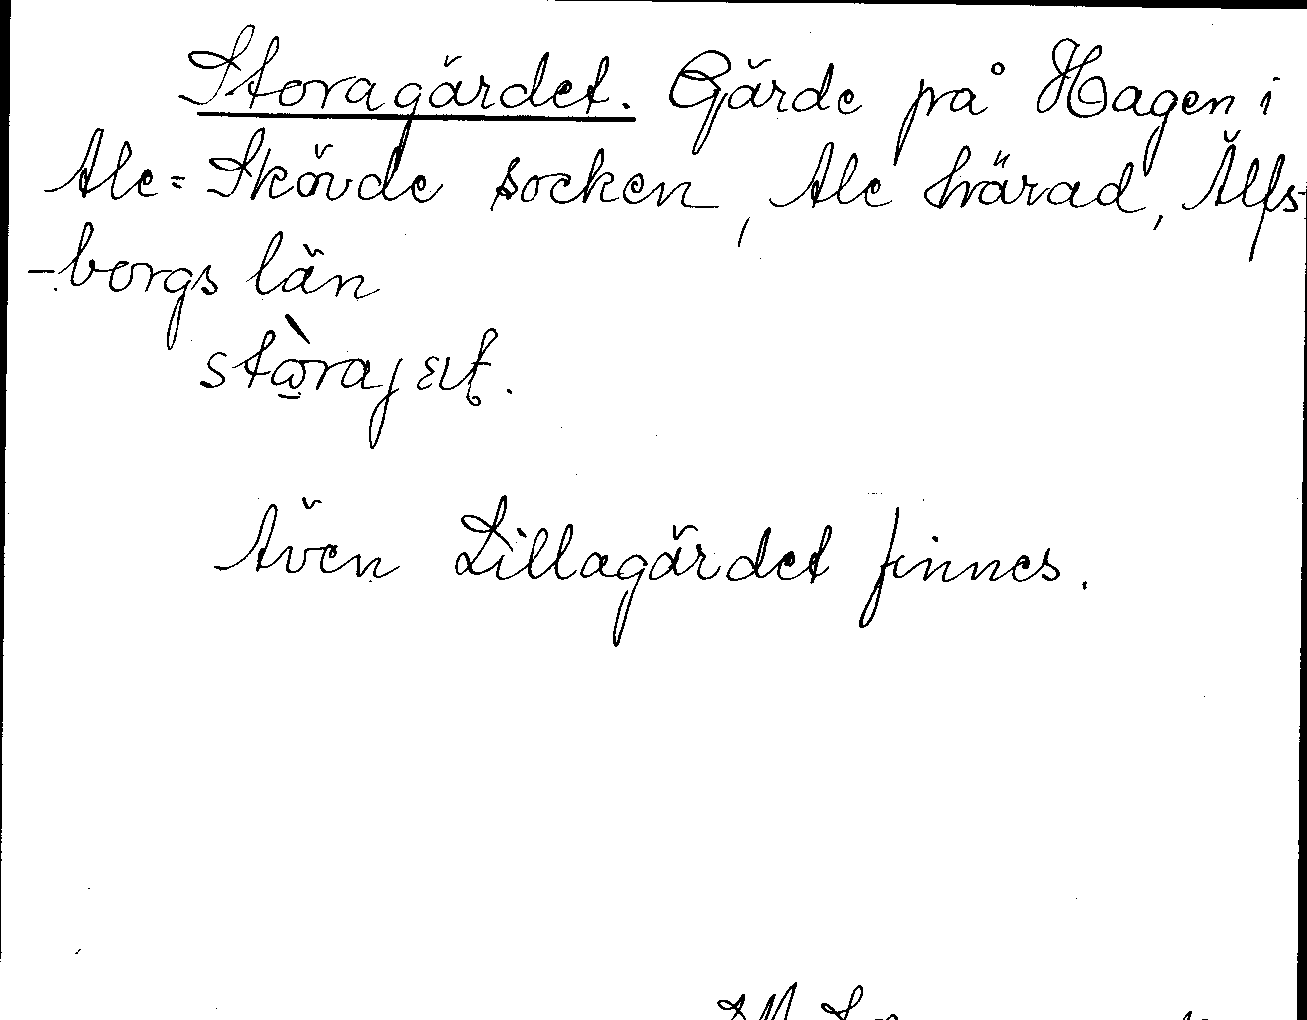 Storagärdet. Gärde på Hagen i
Ale=Skövde socken, Ale härad, Älfs-
-borgs län
Även Lillagärdet finnes.